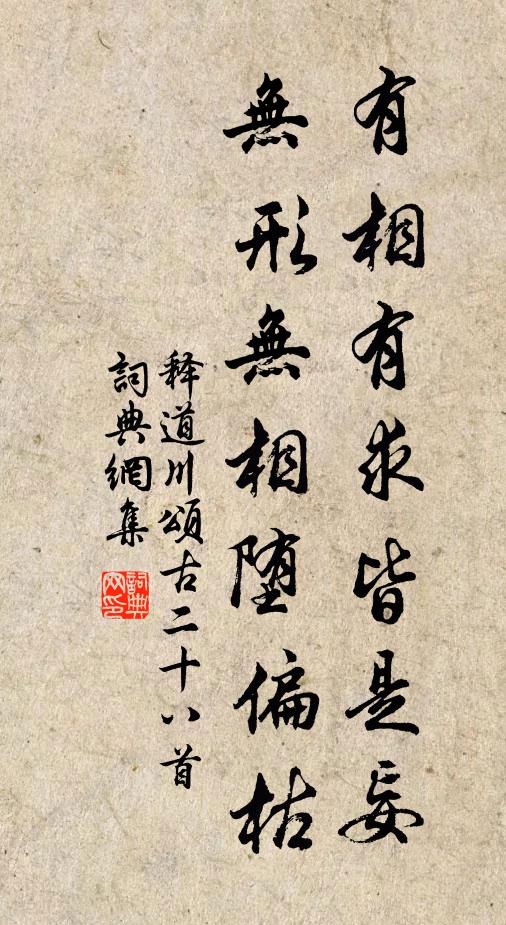 有相有求皆是妄
無形無相堕偏枯
释道川頌古二十八首
詞典網集
詞典网印